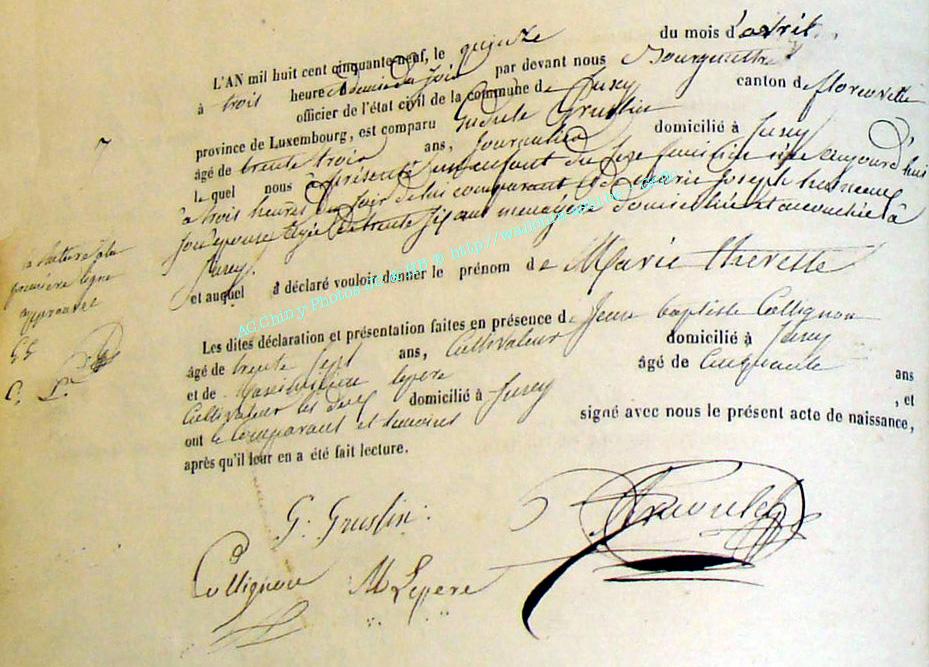 L'AN mil huit cent cinquante-neuf, le quinze du mois d'avril
à trois heure par devant nous Bourgmestre
officier de l'état civil de la commune de Jusey canton de florenville
province de Luxembourg, est comparu Gudule Gruslin
âgé de trente trois ans, Journalier domicilié à Jusey
le quel nous a présenté un enfant du sexe feminin née aujourd'hui
à trois heures du soir de lui comparant et de Marie Joseph
son epouse agée de trente six ans menagere domiciliée et accouchée à
Jusey.
et auquel a déclaré vouloir donner le prénom de Marie theresse
Les dites déclaration et présentation faites en présence de Jean baptiste Collignon
âgé de trente sept ans, Cultivateur domicilié à Jusey
et de Maximilien lepere âgé de Cinquante ans
Cultivateur les deux domicilié à Jusey , et
ont le Comparant et temoins signé avec nous le présent acte de naissance,
après qu'il leur en a été fait lecture.
première ligne
approuvée
G G
C. L.
G. Gruslin.
Collignon M Lepere
AC Chiny Photos http://